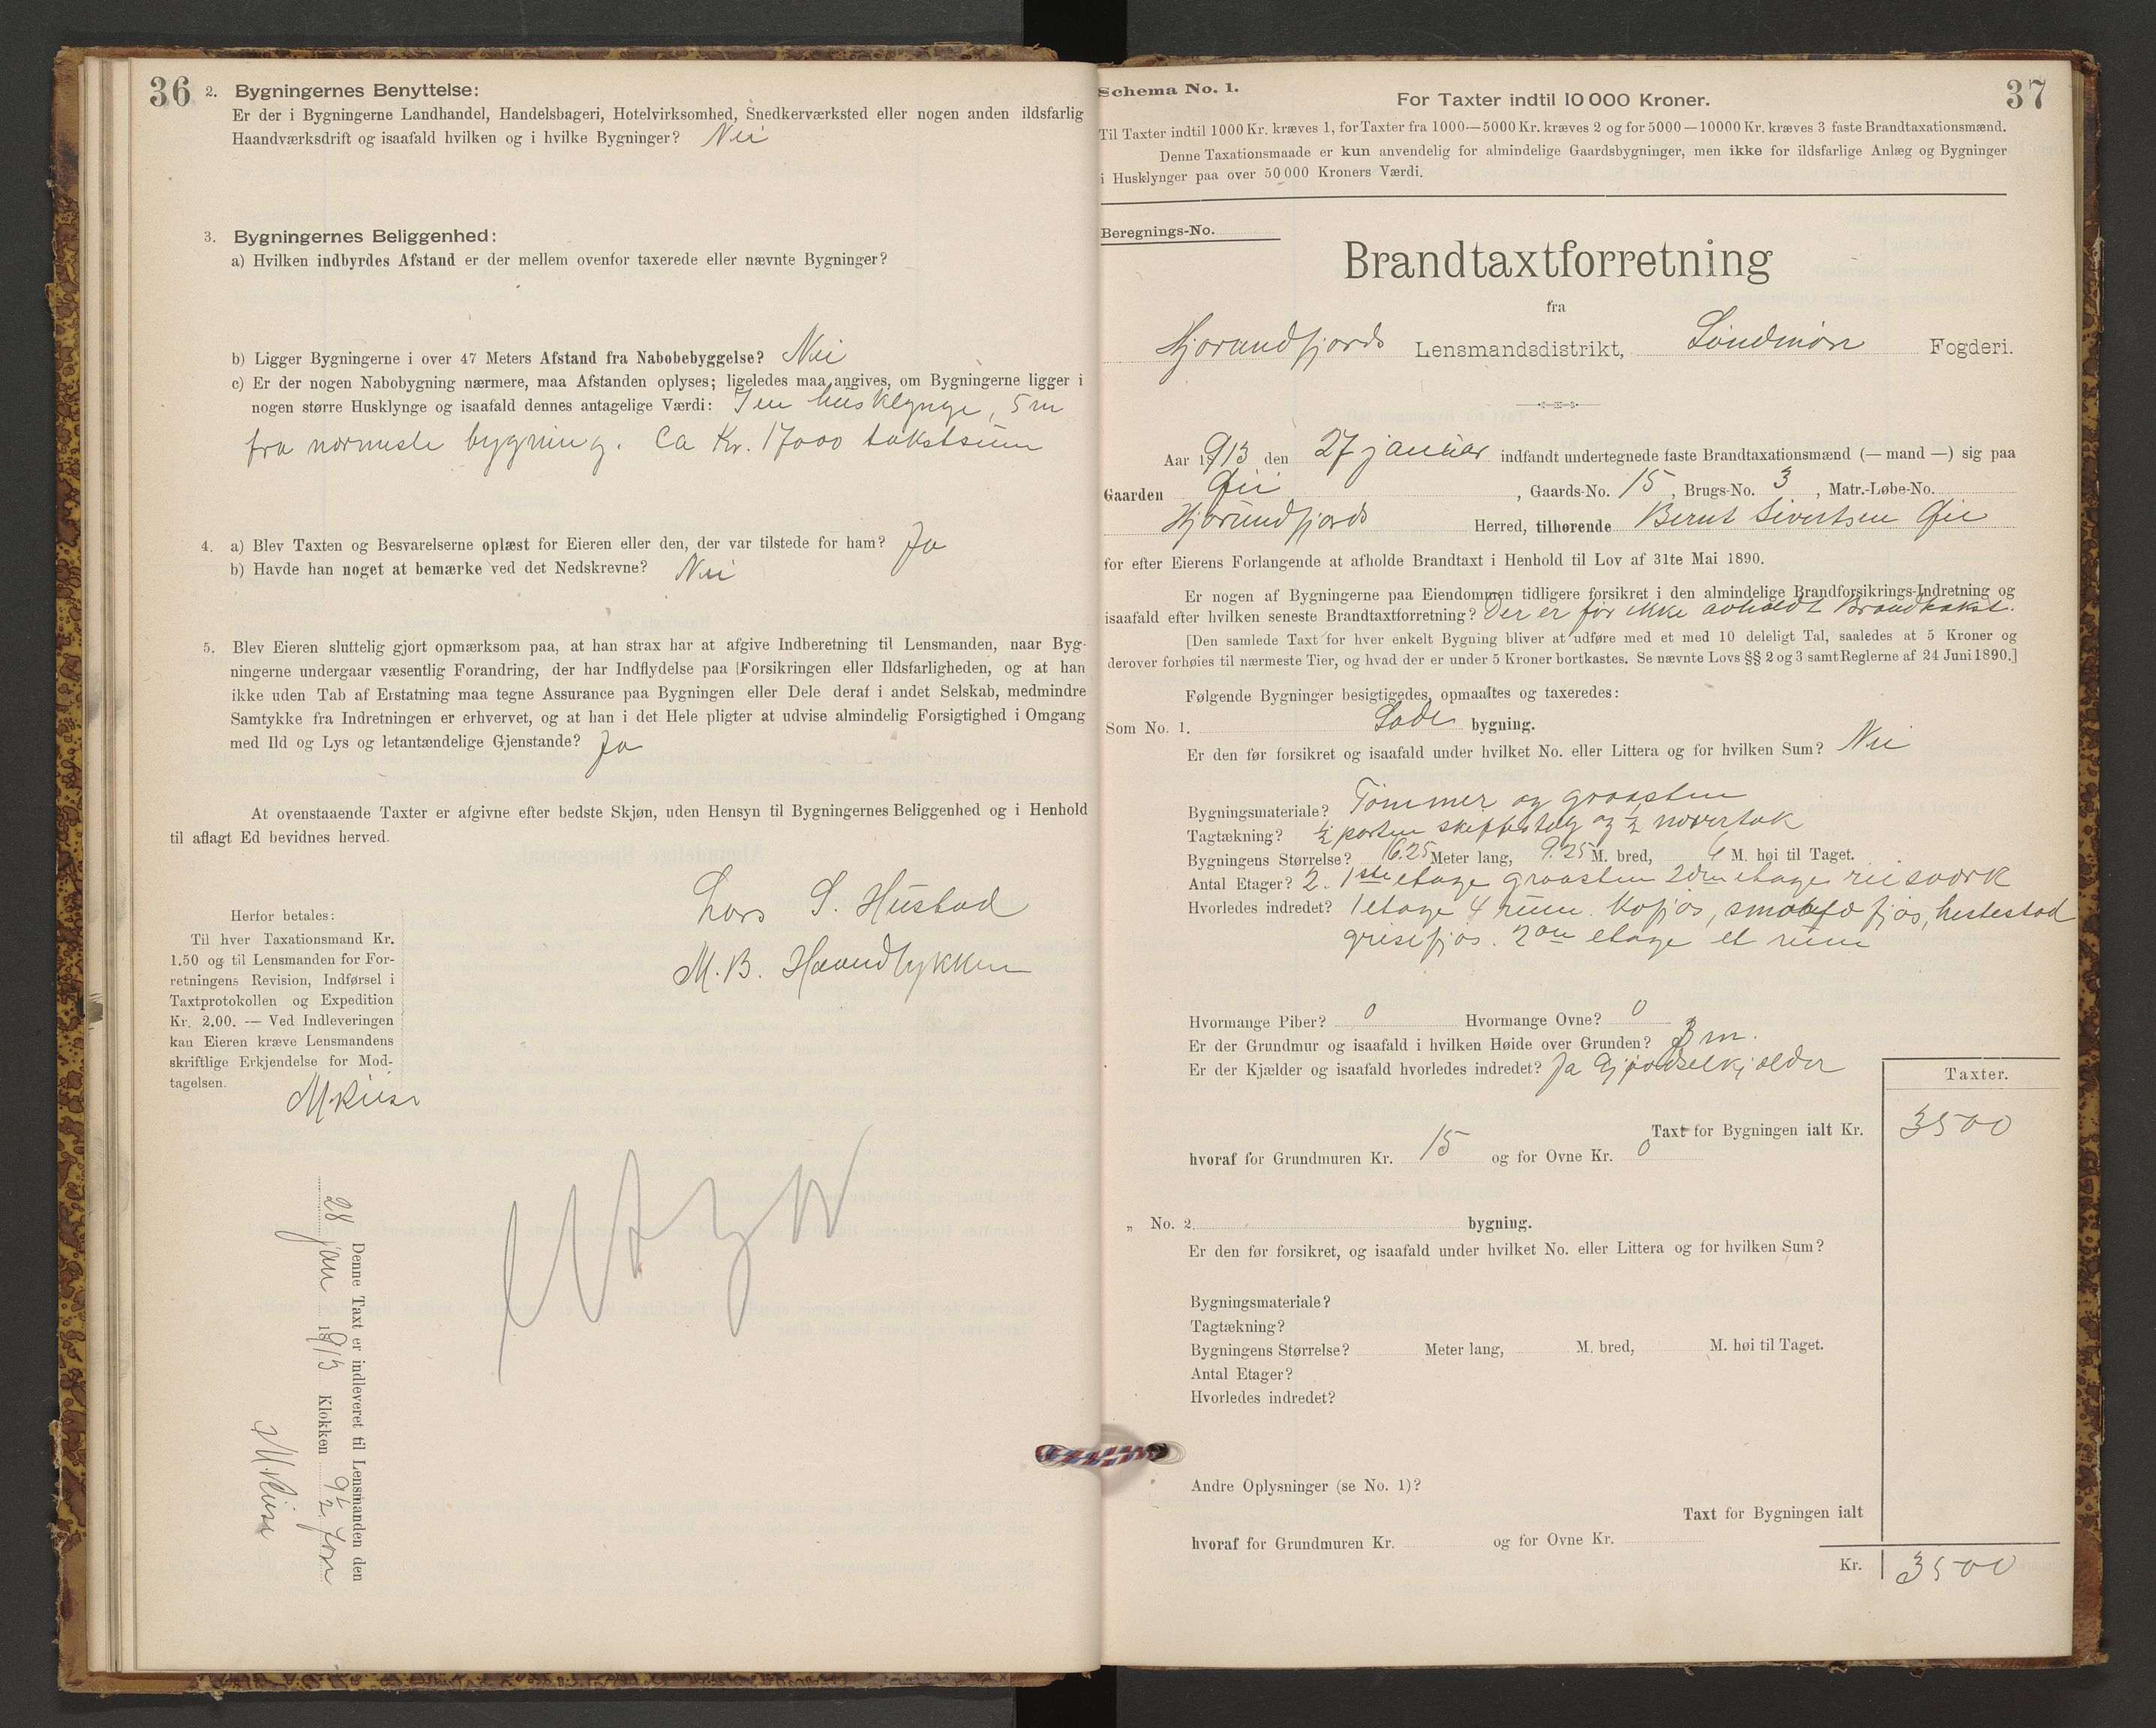 36
2. Bygningernes Benyttelse:
Er der i Bygningerne Landhandel, Handelsbageri, Hotelvirksomhed, Snedkerværksted eller nogen anden ildsfarlig
Haandværksdrift og isaafald hvilken og i hvilke Bygninger? Nei
3. Bygningernes Beliggenhed:
a) Hvilken indbyrdes Afstand er der mellem ovenfor taxerede eller nævnte Bygninger?
b) Ligger Bygningerne i over 47 Meters Afstand fra Nabobebyggelse? Nei
c) Er der nogen Nabobygning nærmere, maa Afstanden oplyses; ligeledes maa angives, om Bygningerne ligger i
nogen større Husklynge og isaafald dennes antagelige Værdi: I en husklynge, 5 m
fra nærmeste bygning. Ca Kr. 17000 takstsum
4. a) Blev Taxten og Besvarelserne oplæst for Eieren eller den, der var tilstede for ham? Ja
b) Havde han noget at bemærke ved det Nedskrevne? Nei
5. Blev Eieren sluttelig gjort opmærksom paa, at han strax har at afgive Indberetning til Lensmanden, naar Byg-
ningerne undergaar væsentlig Forandring, der har Indflydelse paa Forsikringen eller Ildsfarligheden, og at han
ikke uden Tab af Erstatning maa tegne Assurance paa Bygningen eller Dele deraf i andet Selskab, medmindre
Samtykke fra Indretningen er erhvervet, og at han i det Hele pligter at udvise almindelig Forsigtighed i Omgang
med Ild og Lys og letantændelige Gjenstande? Ja
At ovenstaaende Taxter er afgivne efter bedste Skjøn, uden Hensyn til Bygningernes Beliggenhed og i Henhold
til aflagt Ed bevidnes herved.
Lars S. Hustad
M. B. Haandlykken
Herfor betales:
Til hver Taxationsmand Kr.
1.50 og til Lensmanden for For-
retningens Revision, Indførsel i
Taxtprotokollen og Expedition
Kr. 2.00. — Ved Indleveringen
kan Eieren kræve Lensmandens
skriftlige Erkjendelse for Mod-
tagelsen.
M. Riise
Denne Taxt er indleveret til Lensmanden den
28 jan 1913 Klokken 9 1/2 form
M. Riise
37
Schema No. 1.
For Taxter indtil 10 000 Kroner.
Til Taxter indtil 1000 Kr. kræves 1, for Taxter fra 1000—5000 Kr. kræves 2 og for 5000—10000 Kr. kræves 3 faste Brandtaxationsmænd.
Denne Taxationsmaade er kun anvendelig for almindelige Gaardsbygninger, men ikke for ildsfarlige Anlæg og Bygninger
i Husklynger paa over 50 000 Kroners Værdi.
Beregnings-No.
Brandtaxtforretning
fra
Hjørundfjords Lensmandsdistrikt, Søndmøre Fogderi.
Aar 1913 den 27 januar indfandt undertegnede faste Brandtaxationsmænd (— mand —) sig paa
Gaarden Øie, Gaards-No. 15, Brugs-No. 3, Matr.-Løbe-No.
Hjørundfjords Herred, tilhørende Bernt Sivertsen Øie
for efter Eierens Forlangende at afholde Brandtaxt i Henhold til Lov af 31te Mai 1890.
Er nogen af Bygningerne paa Eiendommen tidligere forsikret i den almindelige Brandforsikrings-Indretning og
isaafald efter hvilken seneste Brandtaxtforretning? Der er før ikke avholdt Brandtakst.
[Den samlede Taxt for hver enkelt Bygning bliver at udføre med et med 10 deleligt Tal, saaledes at 5 Kroner og
derover forhøies til nærmeste Tier, og hvad der er under 5 Kroner bortkastes. Se nævnte Lovs §§ 2 og 3 samt Reglerne af 24 Juni 1890.]
Følgende Bygninger besigtigedes, opmaaltes og taxeredes:
Som No. 1. Lade bygning.
Er den før forsikret og isaafald under hvilket No. eller Littera og for hvilken Sum? Nei
Bygningsmateriale? Tømmer og graasten
Tagtækning? 1/2 parten skeffertag og 1/2 nævertak
Bygningens Størrelse? 16.25 Meter lang, 9.25 M. bred, 6 M. høi til Taget.
Antal Etager? 2. 1ste etage graasten 2den etage reisværk
Hvorledes indredet? 1 etage 4 rum. Kofjøs, småfæ fjøs, hestestad
grisefjøs. 2den etage et rum
Hvormange Piber? 0 Hvormange Ovne? 0
Er der Grundmur og isaafald i hvilken Høide over Grunden? 3 m.
Er der Kjælder og isaafald hvorledes indredet? Ja Gjødselkjælder
Taxter.
Taxt for Bygningen ialt Kr. 3500
hvoraf for Grundmuren Kr. 15 og for Ovne Kr. 0
„ No. 2. bygning.
Er den før forsikret, og isaafald under hvilket No. eller Littera og for hvilken Sum?
Bygningsmateriale?
Tagtækning?
Bygningens Størrelse? Meter lang, M. bred, M. høi til Taget.
Antal Etager?
Hvorledes indredet?
Andre Oplysninger (se No. 1)?
Taxt for Bygningen ialt
hvoraf for Grundmuren Kr. og for Ovne Kr.
Kr. 3500